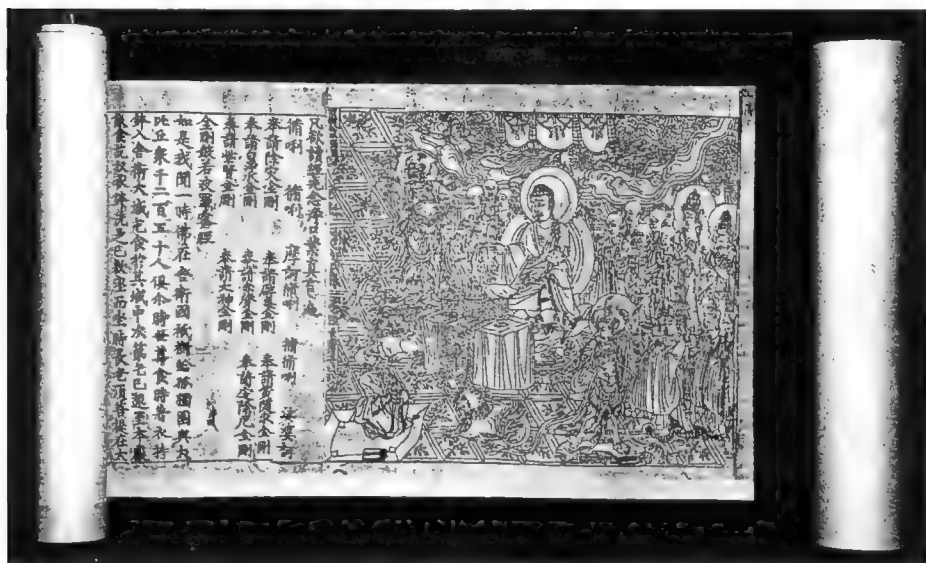 凡欲讀經先念淨口業真言一遍
脩唎 脩唎 摩訶脩唎 脩脩唎 娑婆訶
奉請除災金剛 奉請辟毒金剛 奉請黃隨求金剛
奉請金剛 奉請金剛 奉請定除厄金剛
奉請紫賢金剛 奉請大神金剛
金剛般若波羅蜜經
如是我聞一時佛在舍衛國祇樹給孤獨園與大
比丘眾千二百五十人俱尒時世尊食時著衣持
鉢入舍衛大城乞食於其城中次第乞已還至本處
飯食訖收衣鉢洗足已敷座而坐時長老須菩提在大